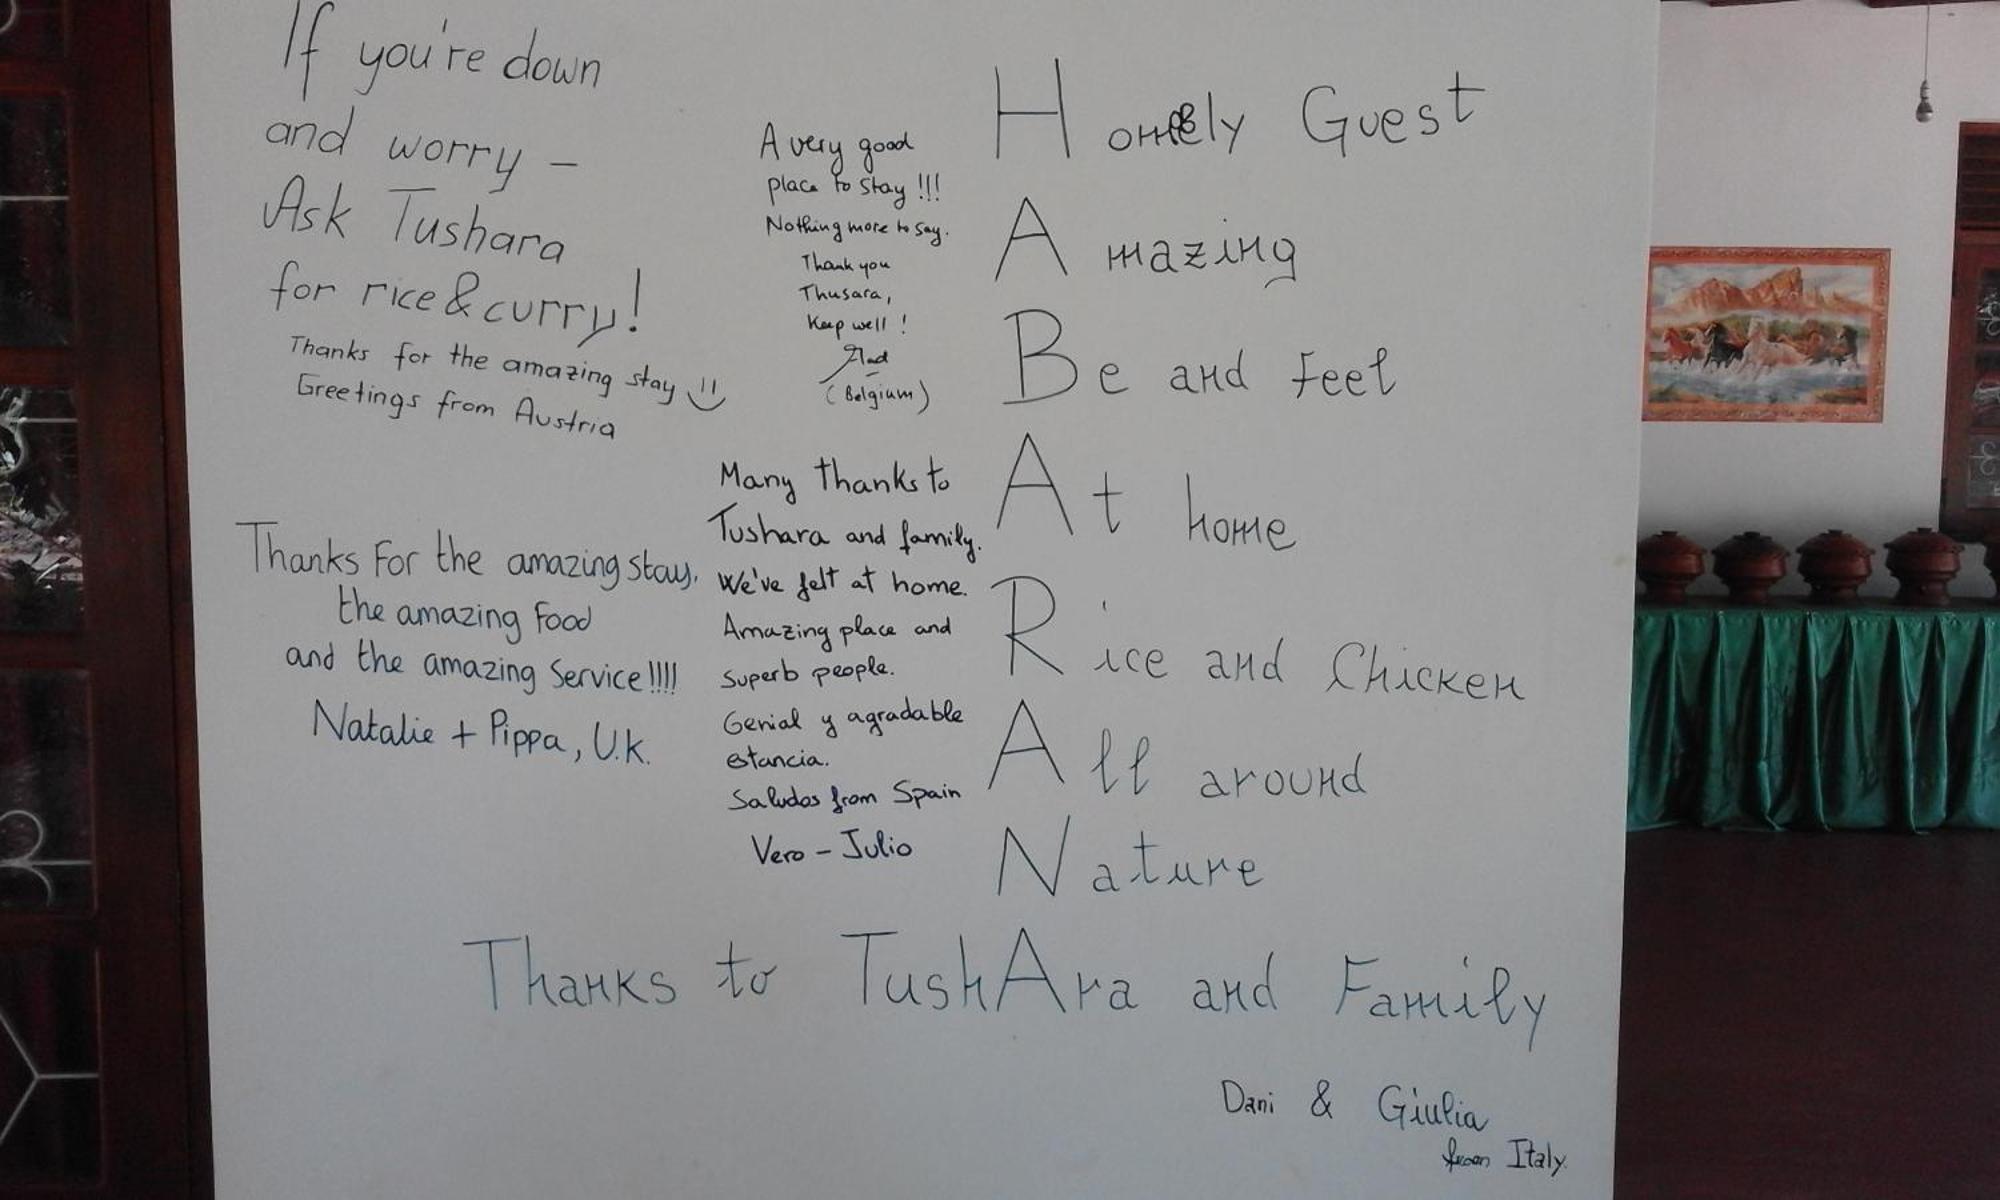 If you're down
and worry –
Ask Tushara
for rice & curry!
Thanks for the amazing stay
Greetings from Austria
Thanks For the amazing stay,
the amazing Food
and the amazing Service!!!!
Natalie + Pippa, U.K.
A very good
place to stay !!!
Nothing more to say.
Thank you
Thusara,
Keep well !
(Belgium)
Many thanks to
Tushara and family.
We've felt at home.
Amazing place and
superb people.
Genial y agradable
estancia.
Saludos from Spain
Vero - Julio
Homely Guest
Amazing
Be and Feel
At home
Rice and Chicken
All around
Nature
Thanks to TushAra and Family
Dani & Giulia
from Italy